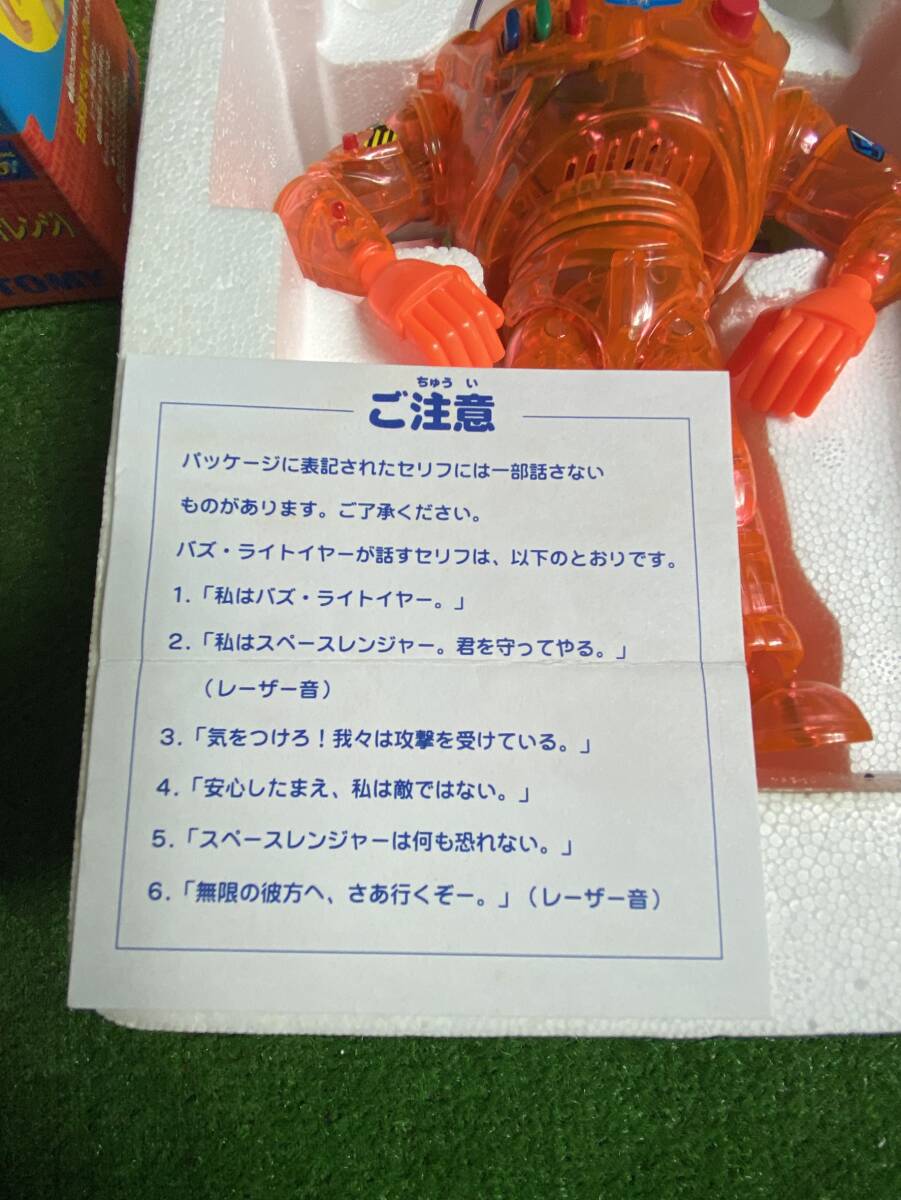 レンジ
TOMY
ちゅう い
ご注意
パッケージに表記されたセリフには一部話さない
ものがあります。ご了承ください。
バズ・ライトイヤーが話すセリフは、以下のとおりです。
1.「私はバズ・ライトイヤー。」
2.「私はスペースレンジャー。君を守ってやる。」
(レーザー音)
3.「気をつけろ!我々は攻撃を受けている。」
4.「安心したまえ、私は敵ではない。」
5.「スペースレンジャーは何も恐れない。」
6.「無限の彼方へ、さあ行くぞー。」(レーザー音)